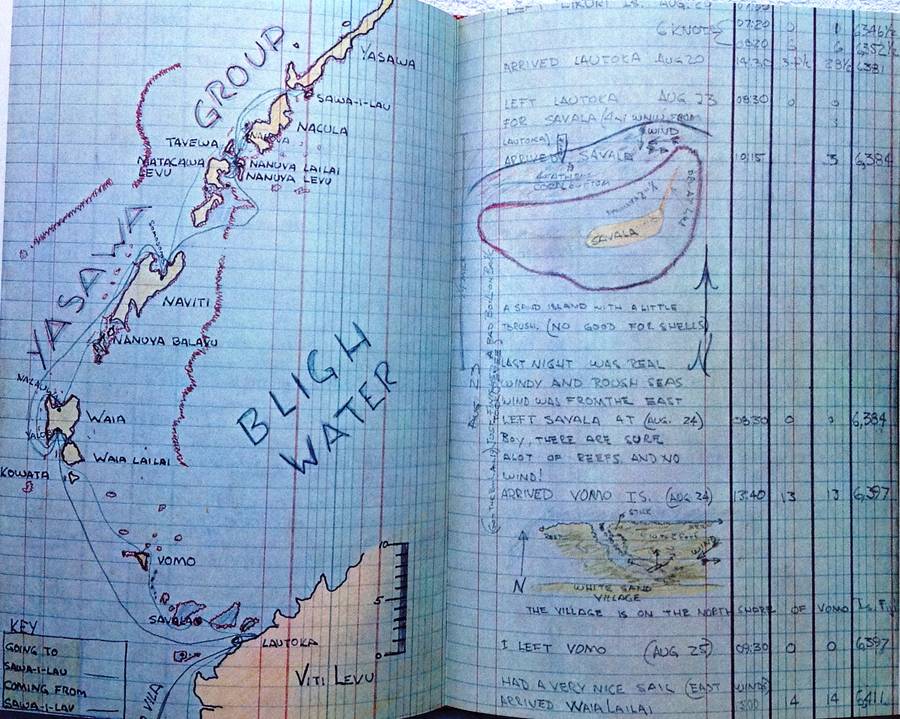 GROUP.
YASAWA
YASAWA
SAWA-I-LAU
NACULA
TAVEWA
MATACAWA
LEVU
NANUYA LAILAI
NANUYA LEVU
NAVITI
NANUYA BALAVU
WAIA
WAIA LAILAI
KOWATA
BLIGH
WATER
VOMO
SAVALA
LAUTOKA
VITI LEVU
VILA
10
5
0
KEY
GOING TO
SAWA-I-LAU
COMING FROM
SAWA-I-LAU
LEFT LIKURI IS. AUG. 20
6 KNOTS 07:20 0 0 6346½
08:20 6 6 6352½
ARRIVED LAUTOKA AUG 20 6381
LEFT LAUTOKA AUG 23 08:30 0 0
FOR SAVALA FROM
LAUTOKA)
WIND
ARRIVED SAVALA 10:15 3 6,384
SAVALA
A SAND ISLAND WITH A LITTLE
BRUSH. (NO GOOD FOR SHELLS)
N
AUG 23
LAST NIGHT WAS REAL
WINDY AND ROUGH SEAS
WIND WAS FROM THE EAST
LEFT SAVALA AT (AUG. 24) 08:30 0 0 6,384
BOY, THERE ARE SURE
ALOT OF REEFS AND NO
WIND!
ARRIVED VOMO IS. (AUG 24) 13:40 13 13 6,397
STICK
REEF
WIND
N
WHITE SAND
VILLAGE
THE VILLAGE IS ON THE NORTH SHORE OF VOMO IS. FIJI
I LEFT VOMO (AUG 25) 09:30 0 0 6397
HAD A VERY NICE SAIL (EAST WINDS)
ARRIVED WAIA LAILAI 14 14 6,411